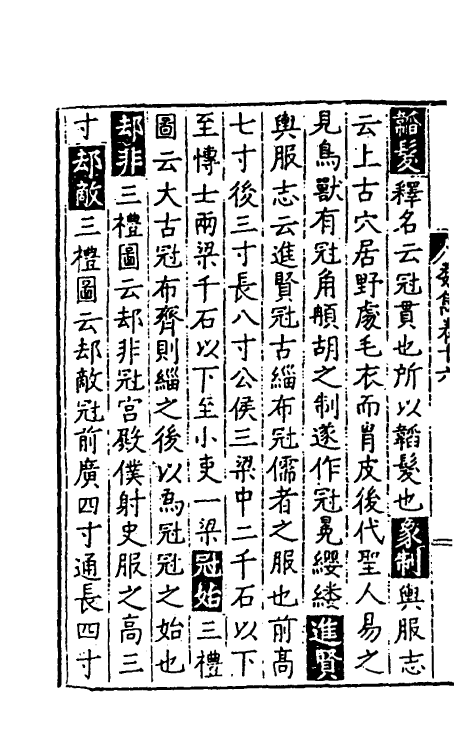 韜髮釋名云冠貫也所以韜髮也象制輿服志
云上古穴居野處毛衣而肖皮後代聖人易之
見鳥獸有冠角頿胡之制遂作冠冕纓緌進賢
輿服志云進賢冠古緇布冠儒者之服也前高
七寸後三寸長八寸公侯三梁中二千石以下
至博士兩梁千石以下至小吏一梁冠始三禮
圖云大古冠布齊則緇之後以為冠冠之始也
却非三禮圖云却非冠宮殿僕射史服之高三
寸却敵三禮圖云却敵冠前廣四寸通長四寸